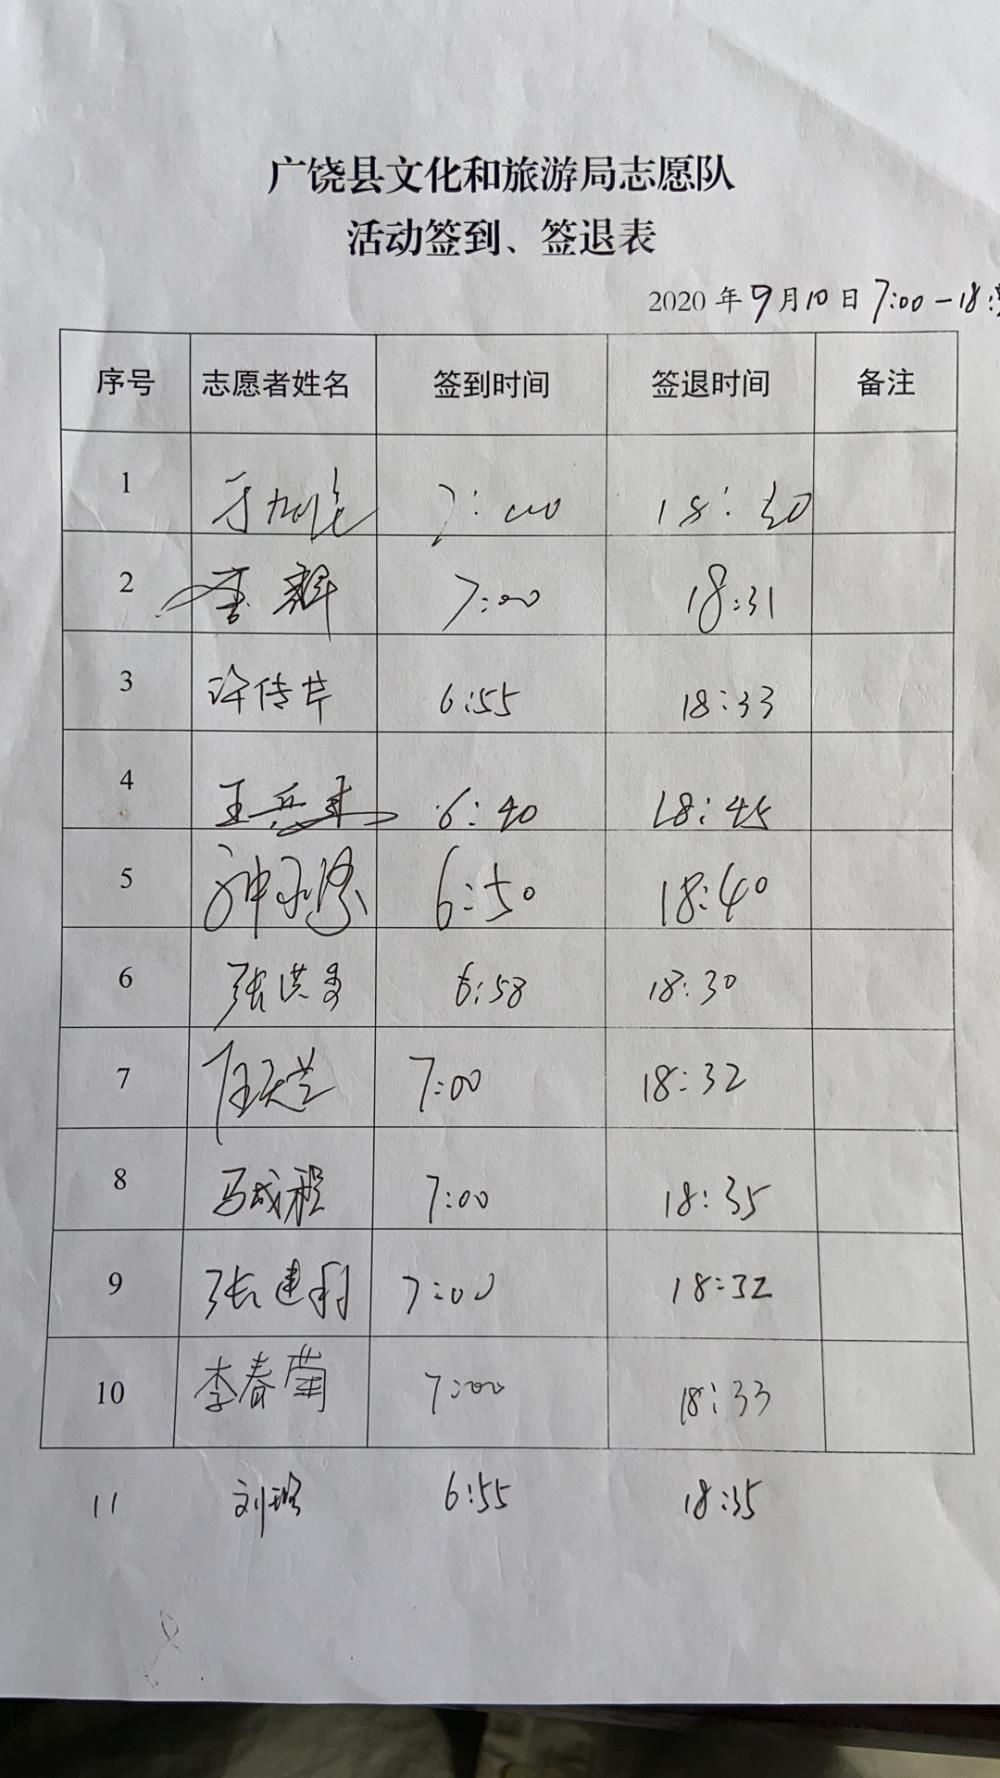 广饶县文化和旅游局志愿队
活动签到、签退表
2020年9月10日7:00-18:
序号 志愿者姓名 签到时间 签退时间 备注
1 7:00 18:30
2 李 7:00 18:31
3 许传芹 6:55 18:33
4 王兵 6:40 18:45
5 6:50 18:40
6 张洪 6:58 18:30
7 任天兰 7:00 18:32
8 马成程 7:00 18:35
9 张建利 7:00 18:32
10 李春菊 7:00 18:33
11 刘 6:55 18:35